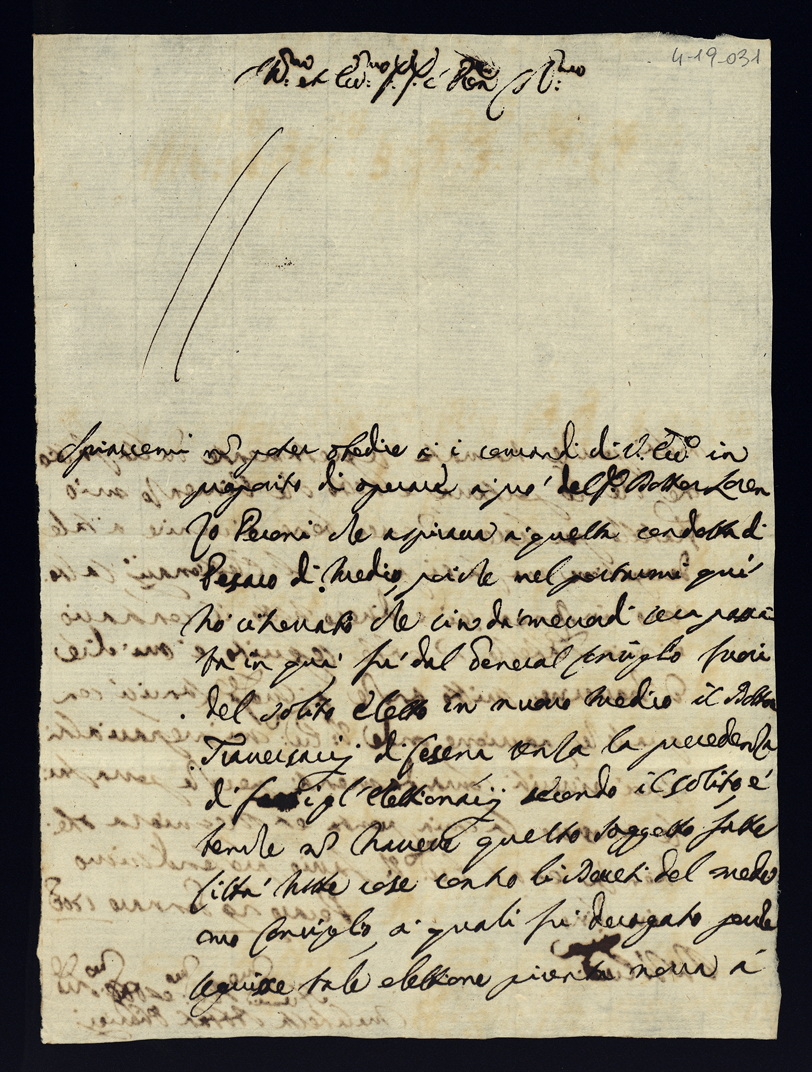 4-19-031
Ill.mo et Ecc.mo
Spiacemi nõ poter obedire a i comandi di V. Ecc.a in
proposito di operare a pro' del S.r Dottor Loren
zo Peroni che aspirava a questa condotta di
Pesaro di Medico, poiche nel portarmi qui
ho ritrovato che sin da mercordi
ta in qua, fu' dal General Consiglio fuori
del solito eletto in nuovo Medico il Dottor
Traversarij di Cesena senza la precedenza
di gl'Elettionarij secondo il solito e'
benche nõ havere questo soggetto fatte
Città tutte cose contro li Decreti del mede
mo Consiglio, a quali fu' derogato perche
seguisse tale elettione prima a